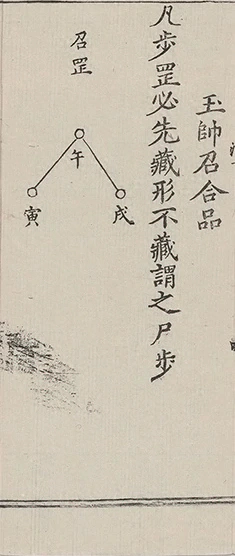 玉帥召合品
凡步罡必先藏形不藏謂之尸步
召罡
午
戌
寅